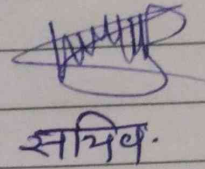 सचिव.